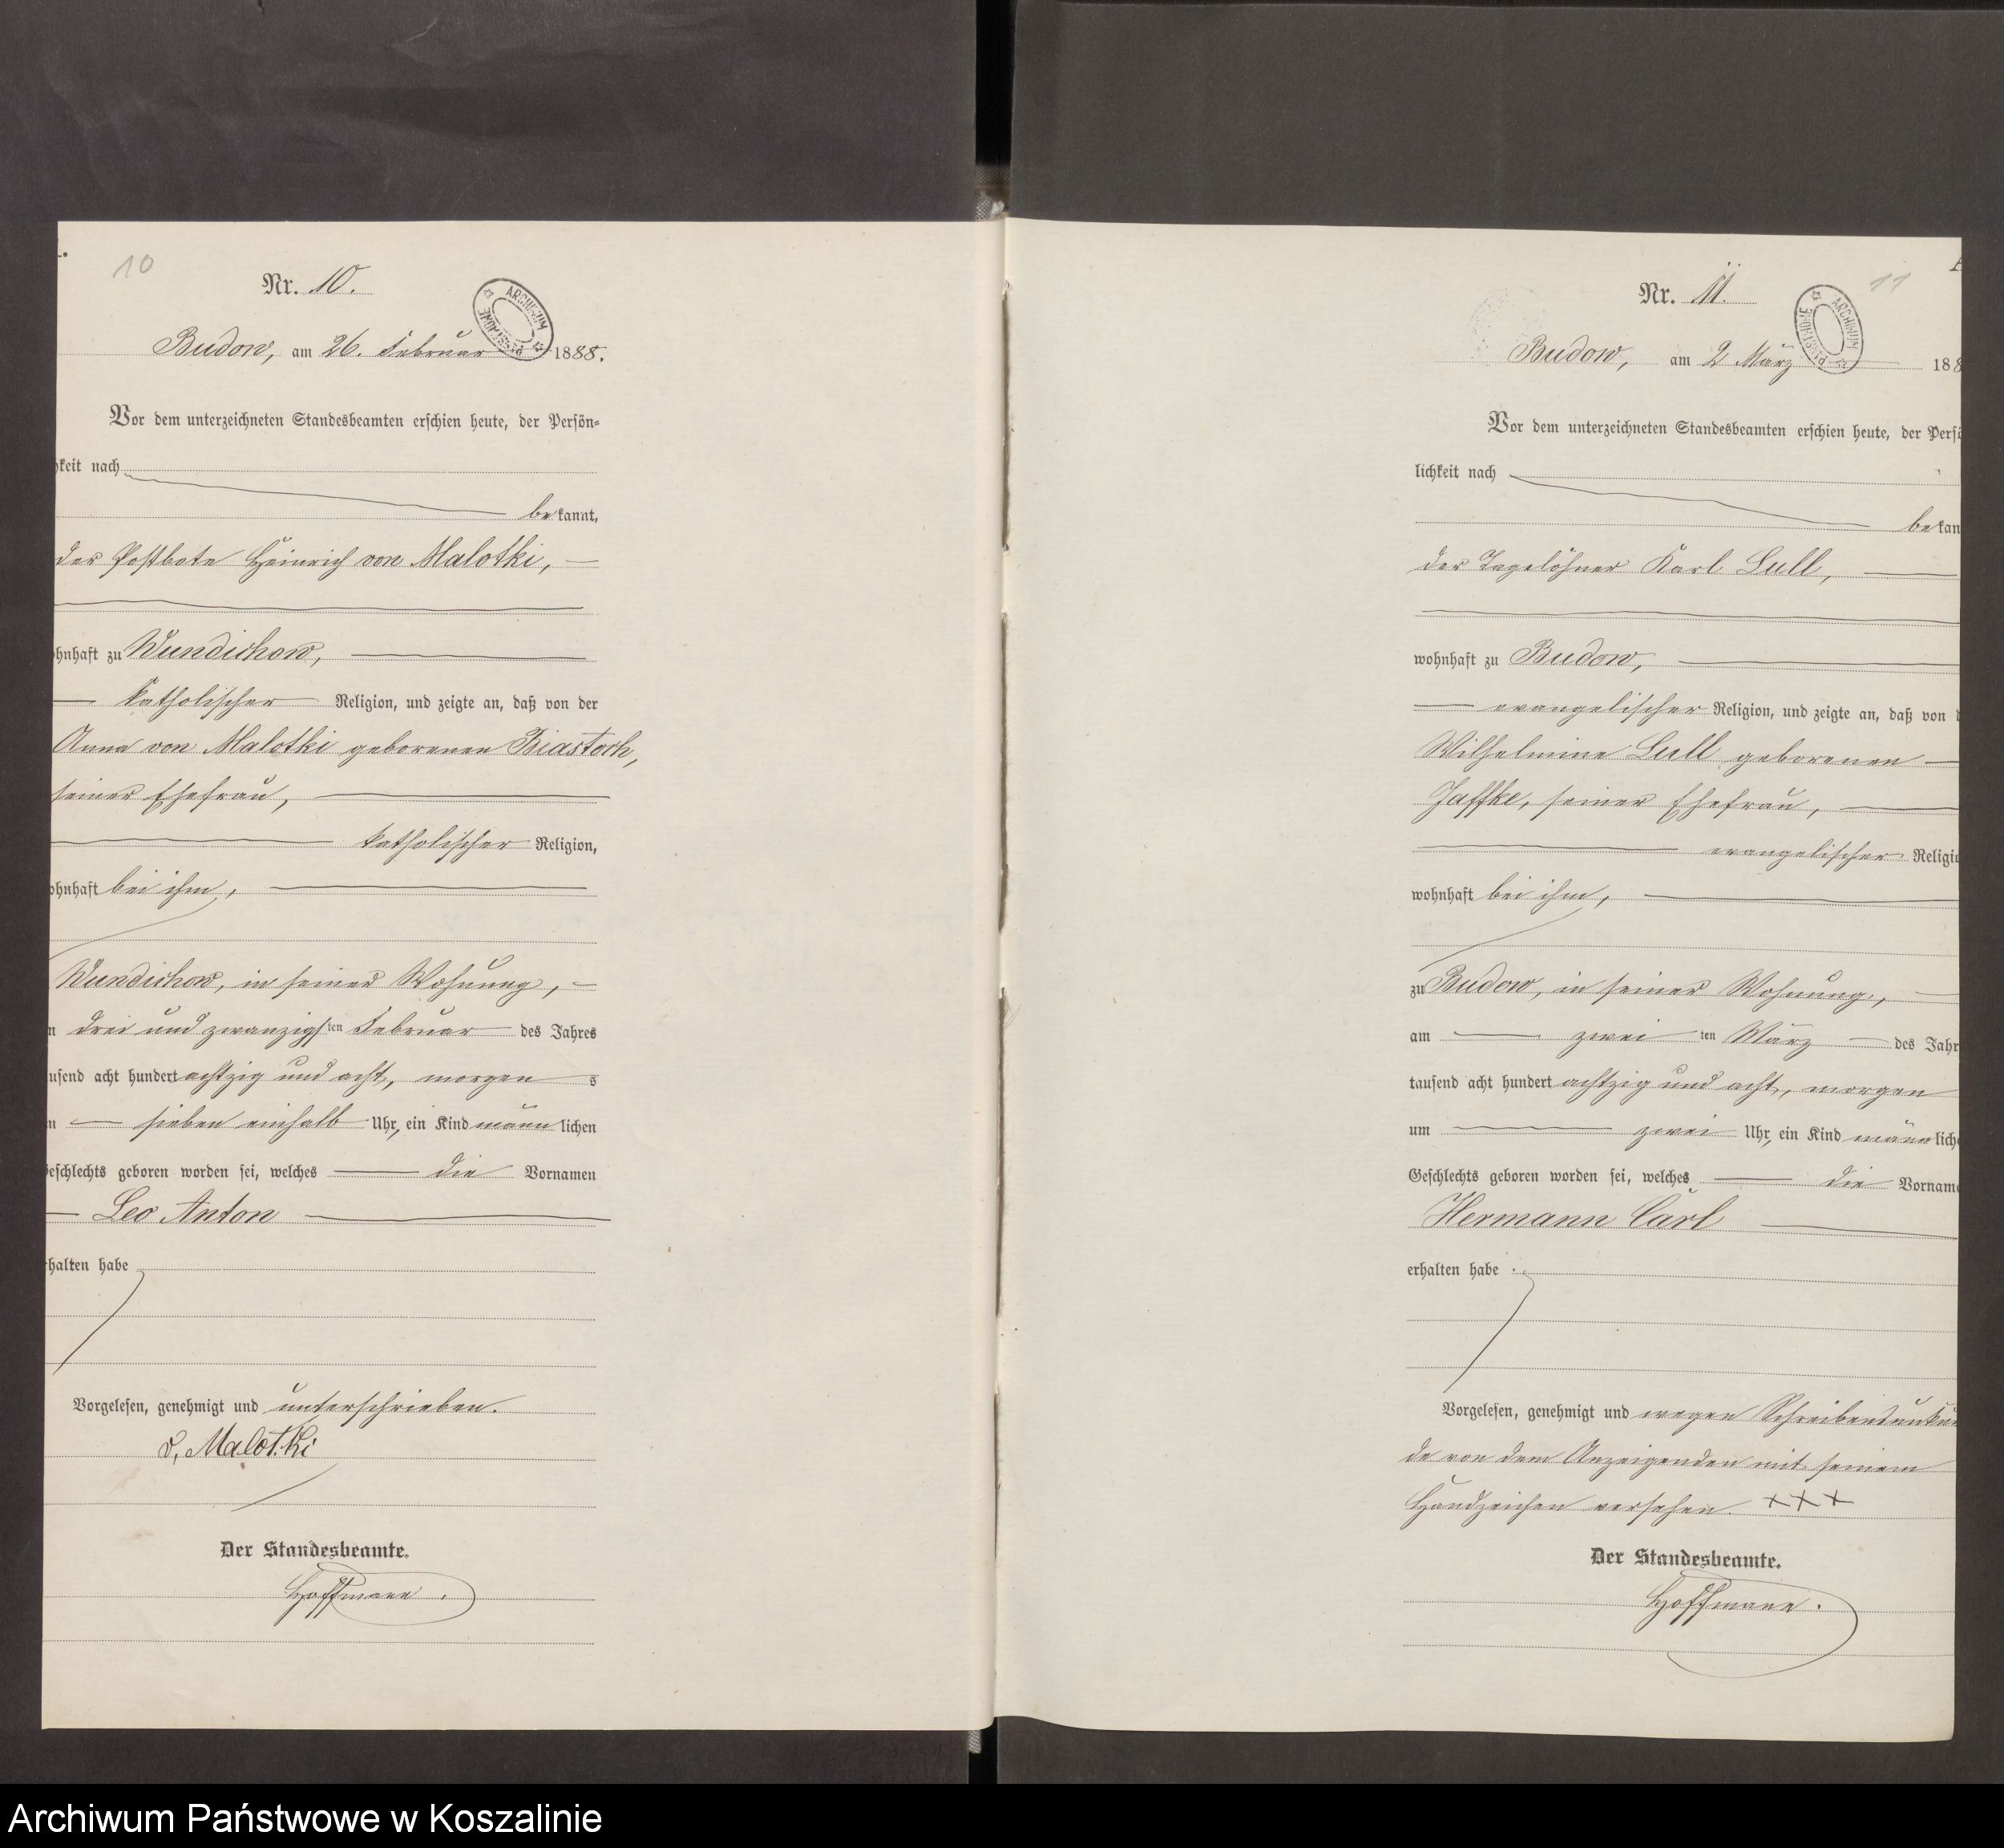 10
Nr. 10.
ARCHIWUM PAŃSTWOWE
Budow, am 26. Februar 1888.
Vor dem unterzeichneten Standesbeamten erschien heute, der Persön-
hkeit nach
be kannt,
der Postbote Heinrich von Malotki,
ohnhaft zu Wundichow,
katholischer Religion, und zeigte an, daß von der
Anna von Malotki geborenen Biastoch,
seiner Ehefrau,
katholischer Religion,
ohnhaft bei ihm,
Wundichow, in seiner Wohnung,
n drei und zwanzigsten Februar des Jahres
usend acht hundert achtzig und acht, morgen s
m sieben einhalb Uhr, ein Kind männ lichen
Geschlechts geboren worden sei, welches die Vornamen
Leo Anton
rhalten habe
Vorgelesen, genehmigt und unterschrieben.
v. Malotki
Der Standesbeamte.
Hoffmann.
11
Nr. 11.
ARCHIWUM PAŃSTWOWE
Budow, am 2 März 188
Vor dem unterzeichneten Standesbeamten erschien heute, der Persö
lichkeit nach
be kan
der Tagelöhner Karl Lull,
wohnhaft zu Budow,
evangelischer Religion, und zeigte an, daß von d
Wilhelmine Lull geborenen
Jaffke, seiner Ehefrau,
evangelischer Religio
wohnhaft bei ihm,
zu Budow, in seiner Wohnung,
am zwei ten März des Jahr
tausend acht hundert achtzig und acht, morgen
um zwei Uhr, ein Kind männ liche
Geschlechts geboren worden sei, welches die Vorname
Hermann Carl
erhalten habe.
Vorgelesen, genehmigt und wegen Schreibensunkun
de von dem Anzeigenden mit seinem
Handzeichen versehen. +++
Der Standesbeamte.
Hoffmann.
Archiwum Państwowe w Koszalinie